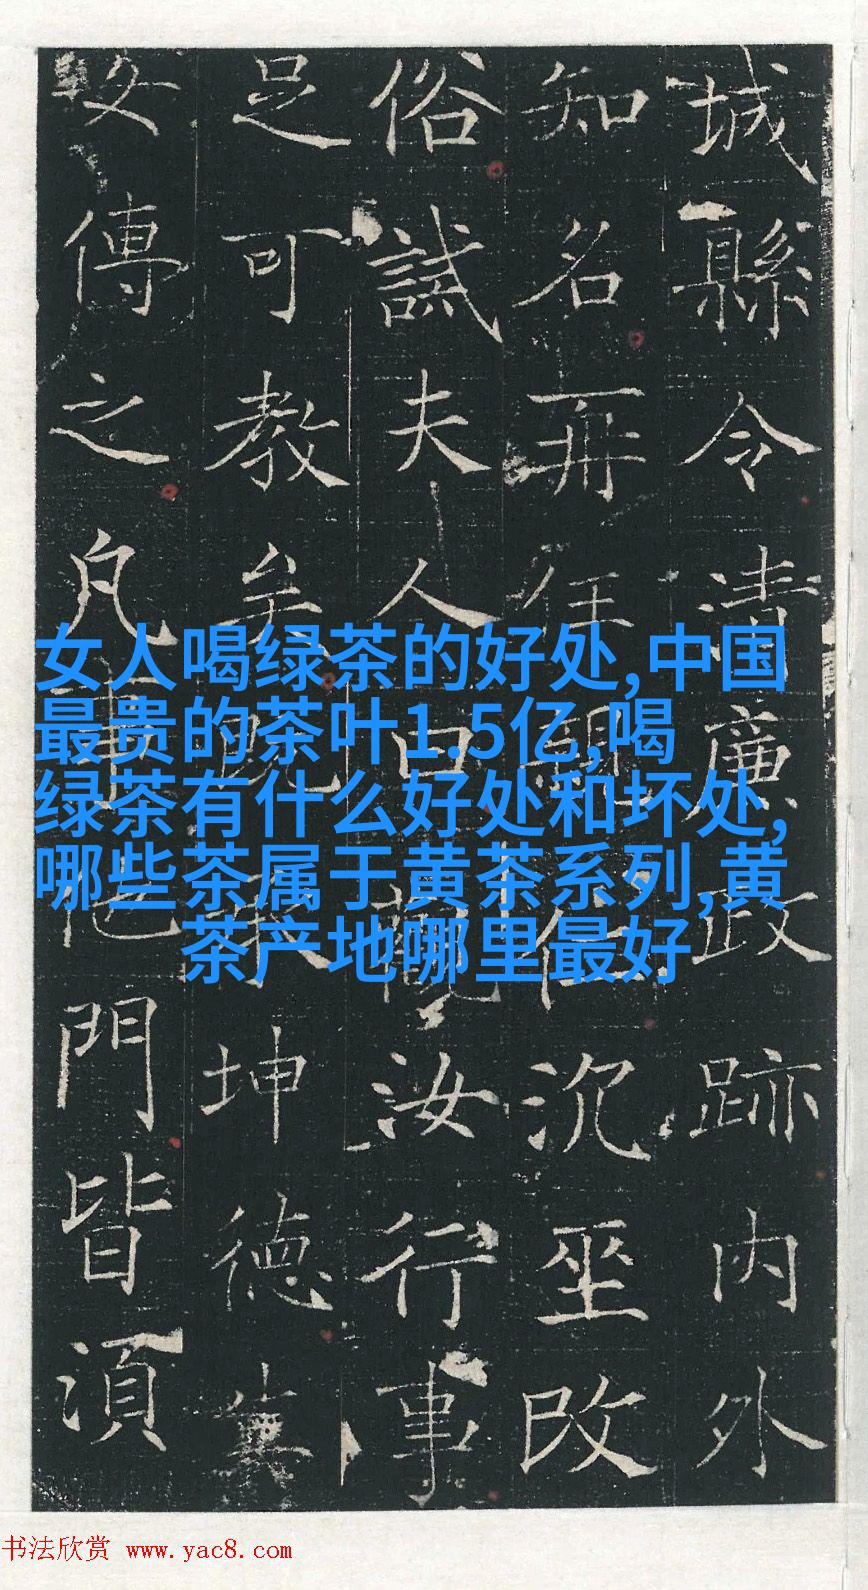 城縣令清廉政跡内外
知名再任
沉坐改
俗誡夫人曰
汝行事
足可教矣
坤德
傳之凡
門皆須
女人喝绿茶的好处,中国
最贵的茶叶1.5亿,喝
绿茶有什么好处和坏处,
哪些茶属于黄茶系列,黄
茶产地哪里最好
书法欣赏 www.yac8.com